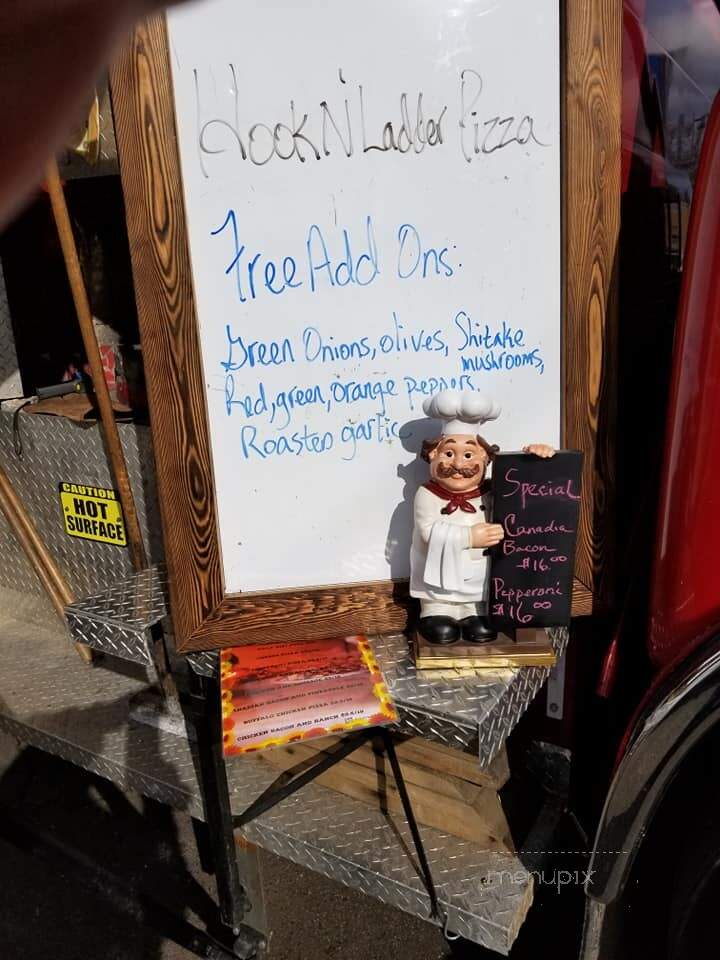 Hook N' Ladder Pizza
Free Add Ons:
Green Onions, olives, Shitake
mushrooms,
Red, green, orange peppers.
Roasted garlic
CAUTION
HOT
SURFACE
Special
Canadia
Bacon
$16.00
Pepperoni
$16.00
BACON AND PINEAPPLE
BUFFALO CHICKEN PIZZA
CHICKEN BACON AND RANCH
menupix